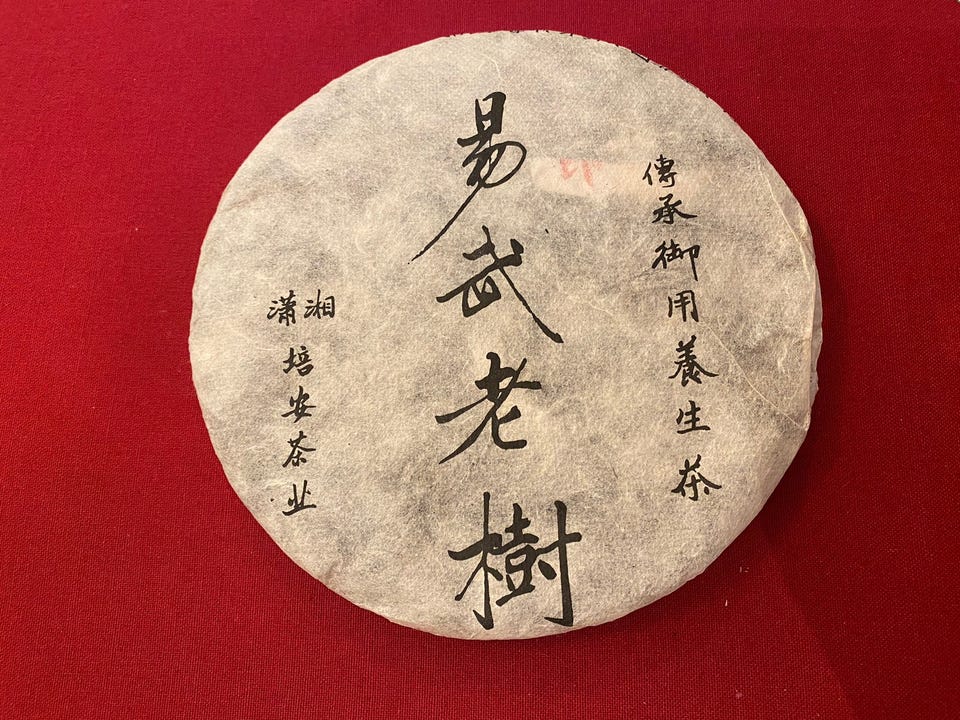 傳承御用養生茶
易武老樹
潇湘
培安茶业